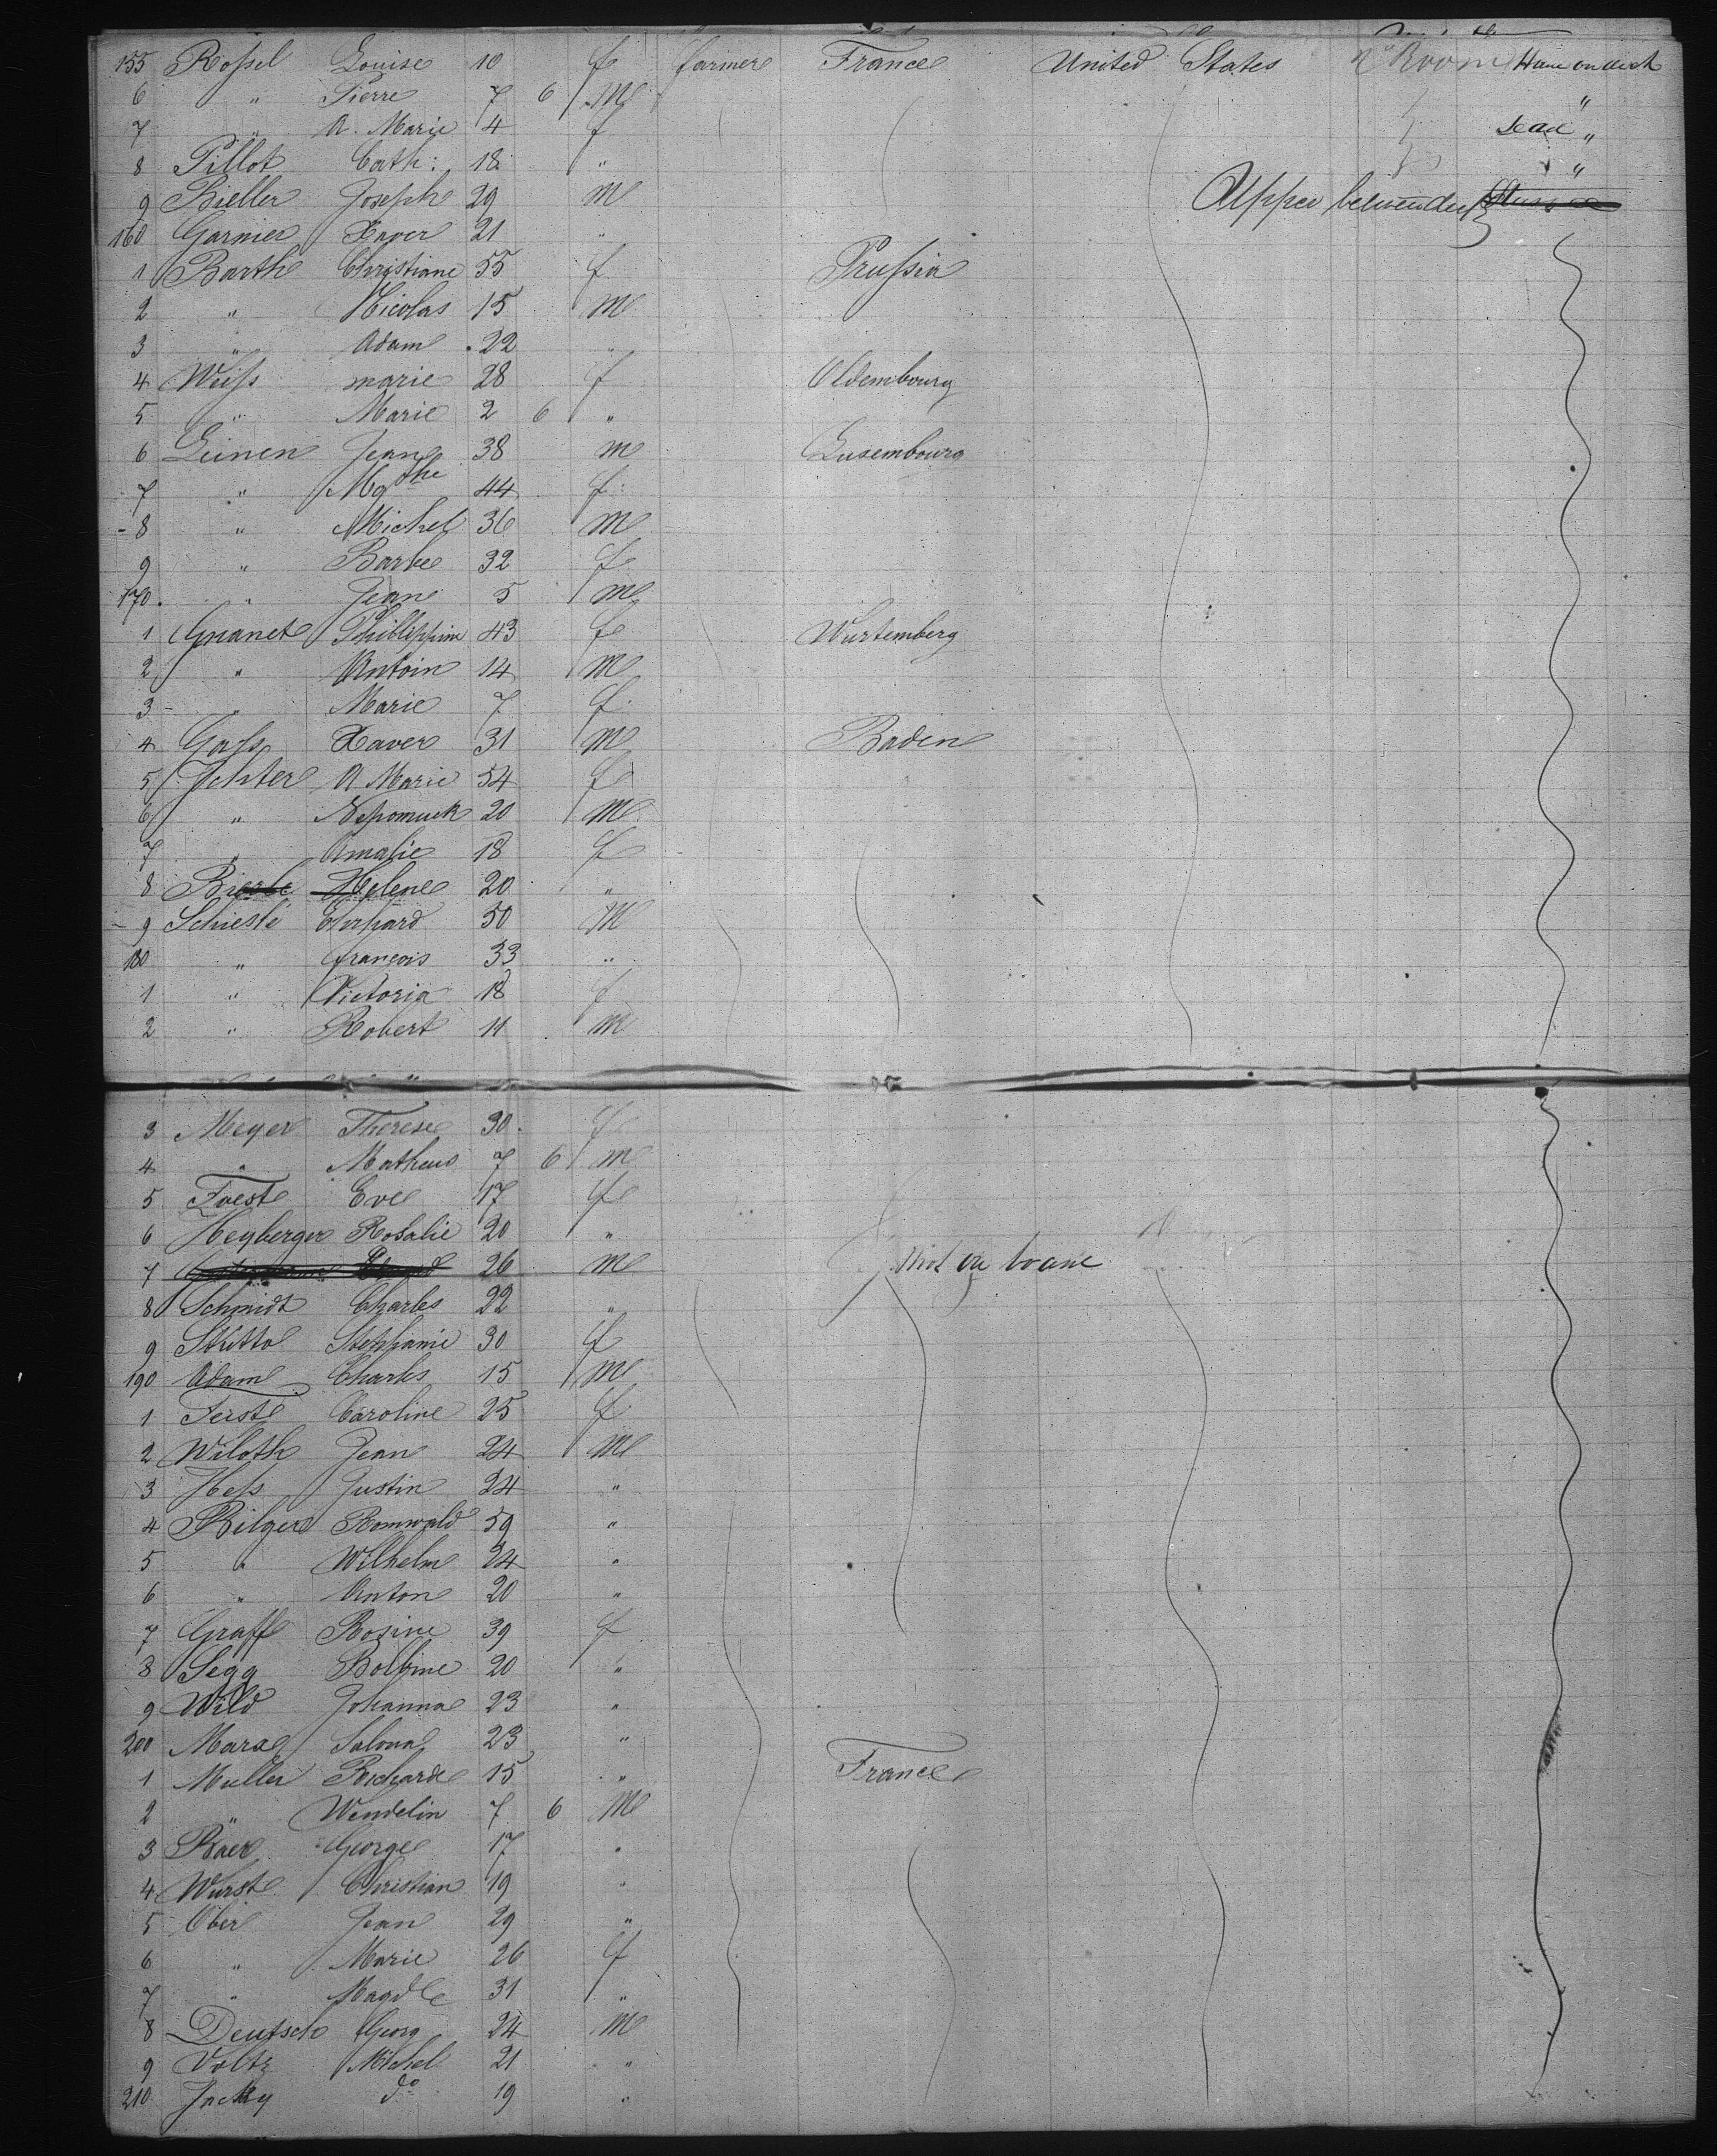 155 Rossel Louise 10 f farmer France United States 2d Room
6 " Pierre 7 6 m "
7 " A. Marie 4 f "
8 Pillot Cath: 18 " "
9 Bieller Joseph 29 m
160 Garnier Xaver 21 "
1 Barth Christiane 55 f Prussia
2 " Nicolas 15 m
3 " Adam 22 "
4 Weiss marie 28 f Oldembourg
5 " Marie 2 6 "
6 Leinen Jean 38 m Lusembourg
7 " Mgthe 44 f
8 " Michel 36 m
9 " Barbe 32 f
170 " Jean 5 m
1 Gnanet Phillippine 43 f Wurtemberg
2 " Antoin 14 m
3 " Marie 7 f
4 Gass Xaver 31 m Baden
5 Ichter A Marie 54 f
6 " Nepomuck 20 m
7 " Amalie 18 f
8 Helene 20 "
9 Schieslé Ehrhard 50 m
180 " françois 33 "
1 " Victoria 18 f
2 " Robert 11 m
3 Meyer Therese 30 f
4 " Matheus 7 6 m
5 Foest Eve 17 f
6 Heyberger Rosalie 20 "
7 26 m Not on board
8 Schmidt Charles 22 "
9 Stütto Stephanie 30 f
190 Adam Charles 15 m
1 Ferste Caroline 25 f
2 Wiloth Jean 24 m
3 Hess Justin 24 "
4 Bilger Romwald 59 "
5 " Wilhelm 24 "
6 " Anton 20 "
7 Graff Rosine 39 f
8 Segg Balbine 20 "
9 Wild Johanna 23 "
200 Marx Salona 23 "
1 Muller Richarde 15 " France
2 " Wendelin 7 6 m
3 Baer George 17 "
4 Wurst Christian 19 "
5 Ober Jean 29 "
6 " Marie 26 f
7 " Magdle 31 "
8 Deutsch Georg 24 m
9 Voltz Michel 21 "
210 Jacky do 19 "